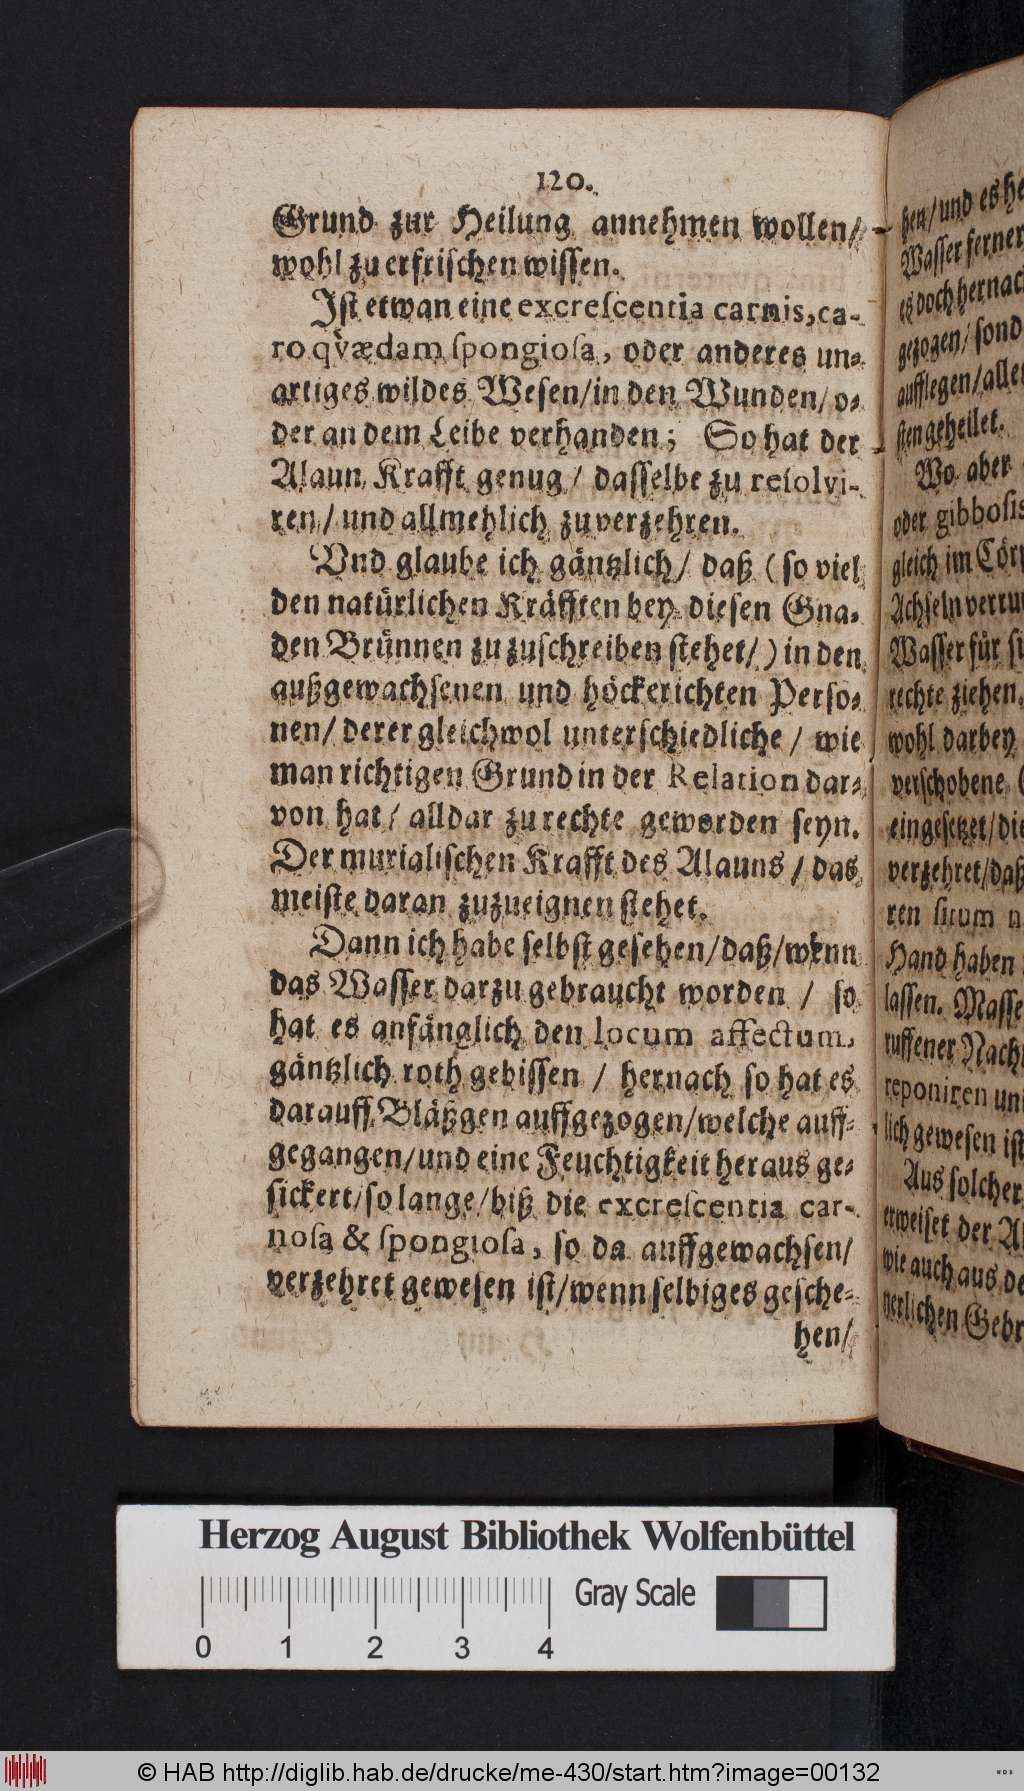 120.
Grund zur Heilung annehmen wollen/
wohl zu erfrischen wissen.
Jst etwan eine excreſcentia carnis, ca-
ro qvædam ſpongioſa, oder anderes un-
artiges wildes Wesen/ in den Wunden/ o-
der an dem Leibe verhanden; So hat der
Alaun Krafft genug/ dasselbe zu reſolvi-
ren/ und allmehlich zuverzehren.
Vnd glaube ich gäntzlich/ daß (so viel
den natürlichen Kräfften bey diesen Gna-
den Brünnen zu zuschreiben stehet/) in den
außgewachsenen und höckerichten Perso-
nen/ derer gleichwol unterschiedliche/ wie
man richtigen Grund in der Relation dar-
von hat/ alldar zu rechte geworden seyn.
Der murialischen Krafft des Alauns/ das
meiste daran zuzueignen stehet.
Dann ich habe selbst gesehen/ daß/ wenn
das Wasser darzu gebraucht worden/ so
hat es anfänglich den locum affectum,
gäntzlich roth gebissen/ hernach so hat es
darauff Bläßgen auffgezogen/ welche auff-
gegangen/ und eine Feuchtigkeit heraus ge-
sickert/ so lange/ biß die excreſcentia car-
noſa & ſpongioſa, so da auffgewachsen/
verzehret gewesen ist/ wenn selbiges gesche-
hen/
hen/ und es
Wasser ferner
es doch
gezogen/ sond
aufflegen/
sten geheilet.
Wo aber
oder gibboſis
gleich im
Achseln
Wasser für
rechte ziehen,
wohl darbey
verschobene
eingesetzet/ die
verzehret/ daß
ren ſitum
Hand haben
lassen. Masse
ruffener
reponiren
lich gewesen ist
Aus solcher
erweiset der
wie auch aus
nerlichen
Herzog August Bibliothek Wolfenbüttel
Gray Scale
0 1 2 3 4
© HAB http://diglib.hab.de/drucke/me-430/start.htm?image=00132